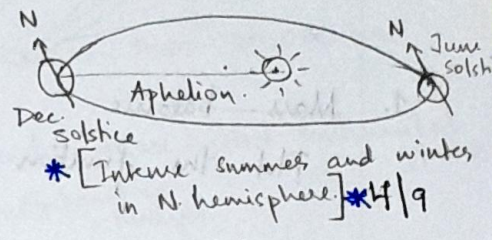 N
N
June
solsti
Aphelion.
Dec.
solstice
* [Intense summer and winter
in N. hemisphere.] * 4/9